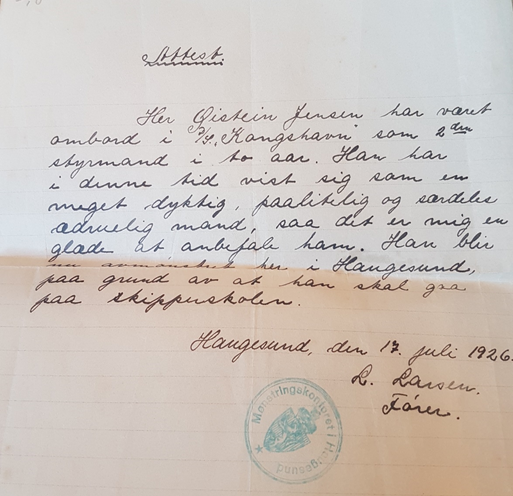 Attest.
Her Øistein Jensen har været
ombord i D/S. Kongshavn som 2den
styrmand i to aar. Han har
i denne tid vist sig som en
meget dyktig, paalitelig og særdeles
ædruelig mand, saa det er mig en
glæde at anbefale ham. Han blir
nu avmønstret her i Haugesund,
paa grund av at han skal gaa
paa skipperskolen.
Haugesund, den 17. juli 1926.
L. Larsen.
Fører.
Mønstringskontoret i Haugesund